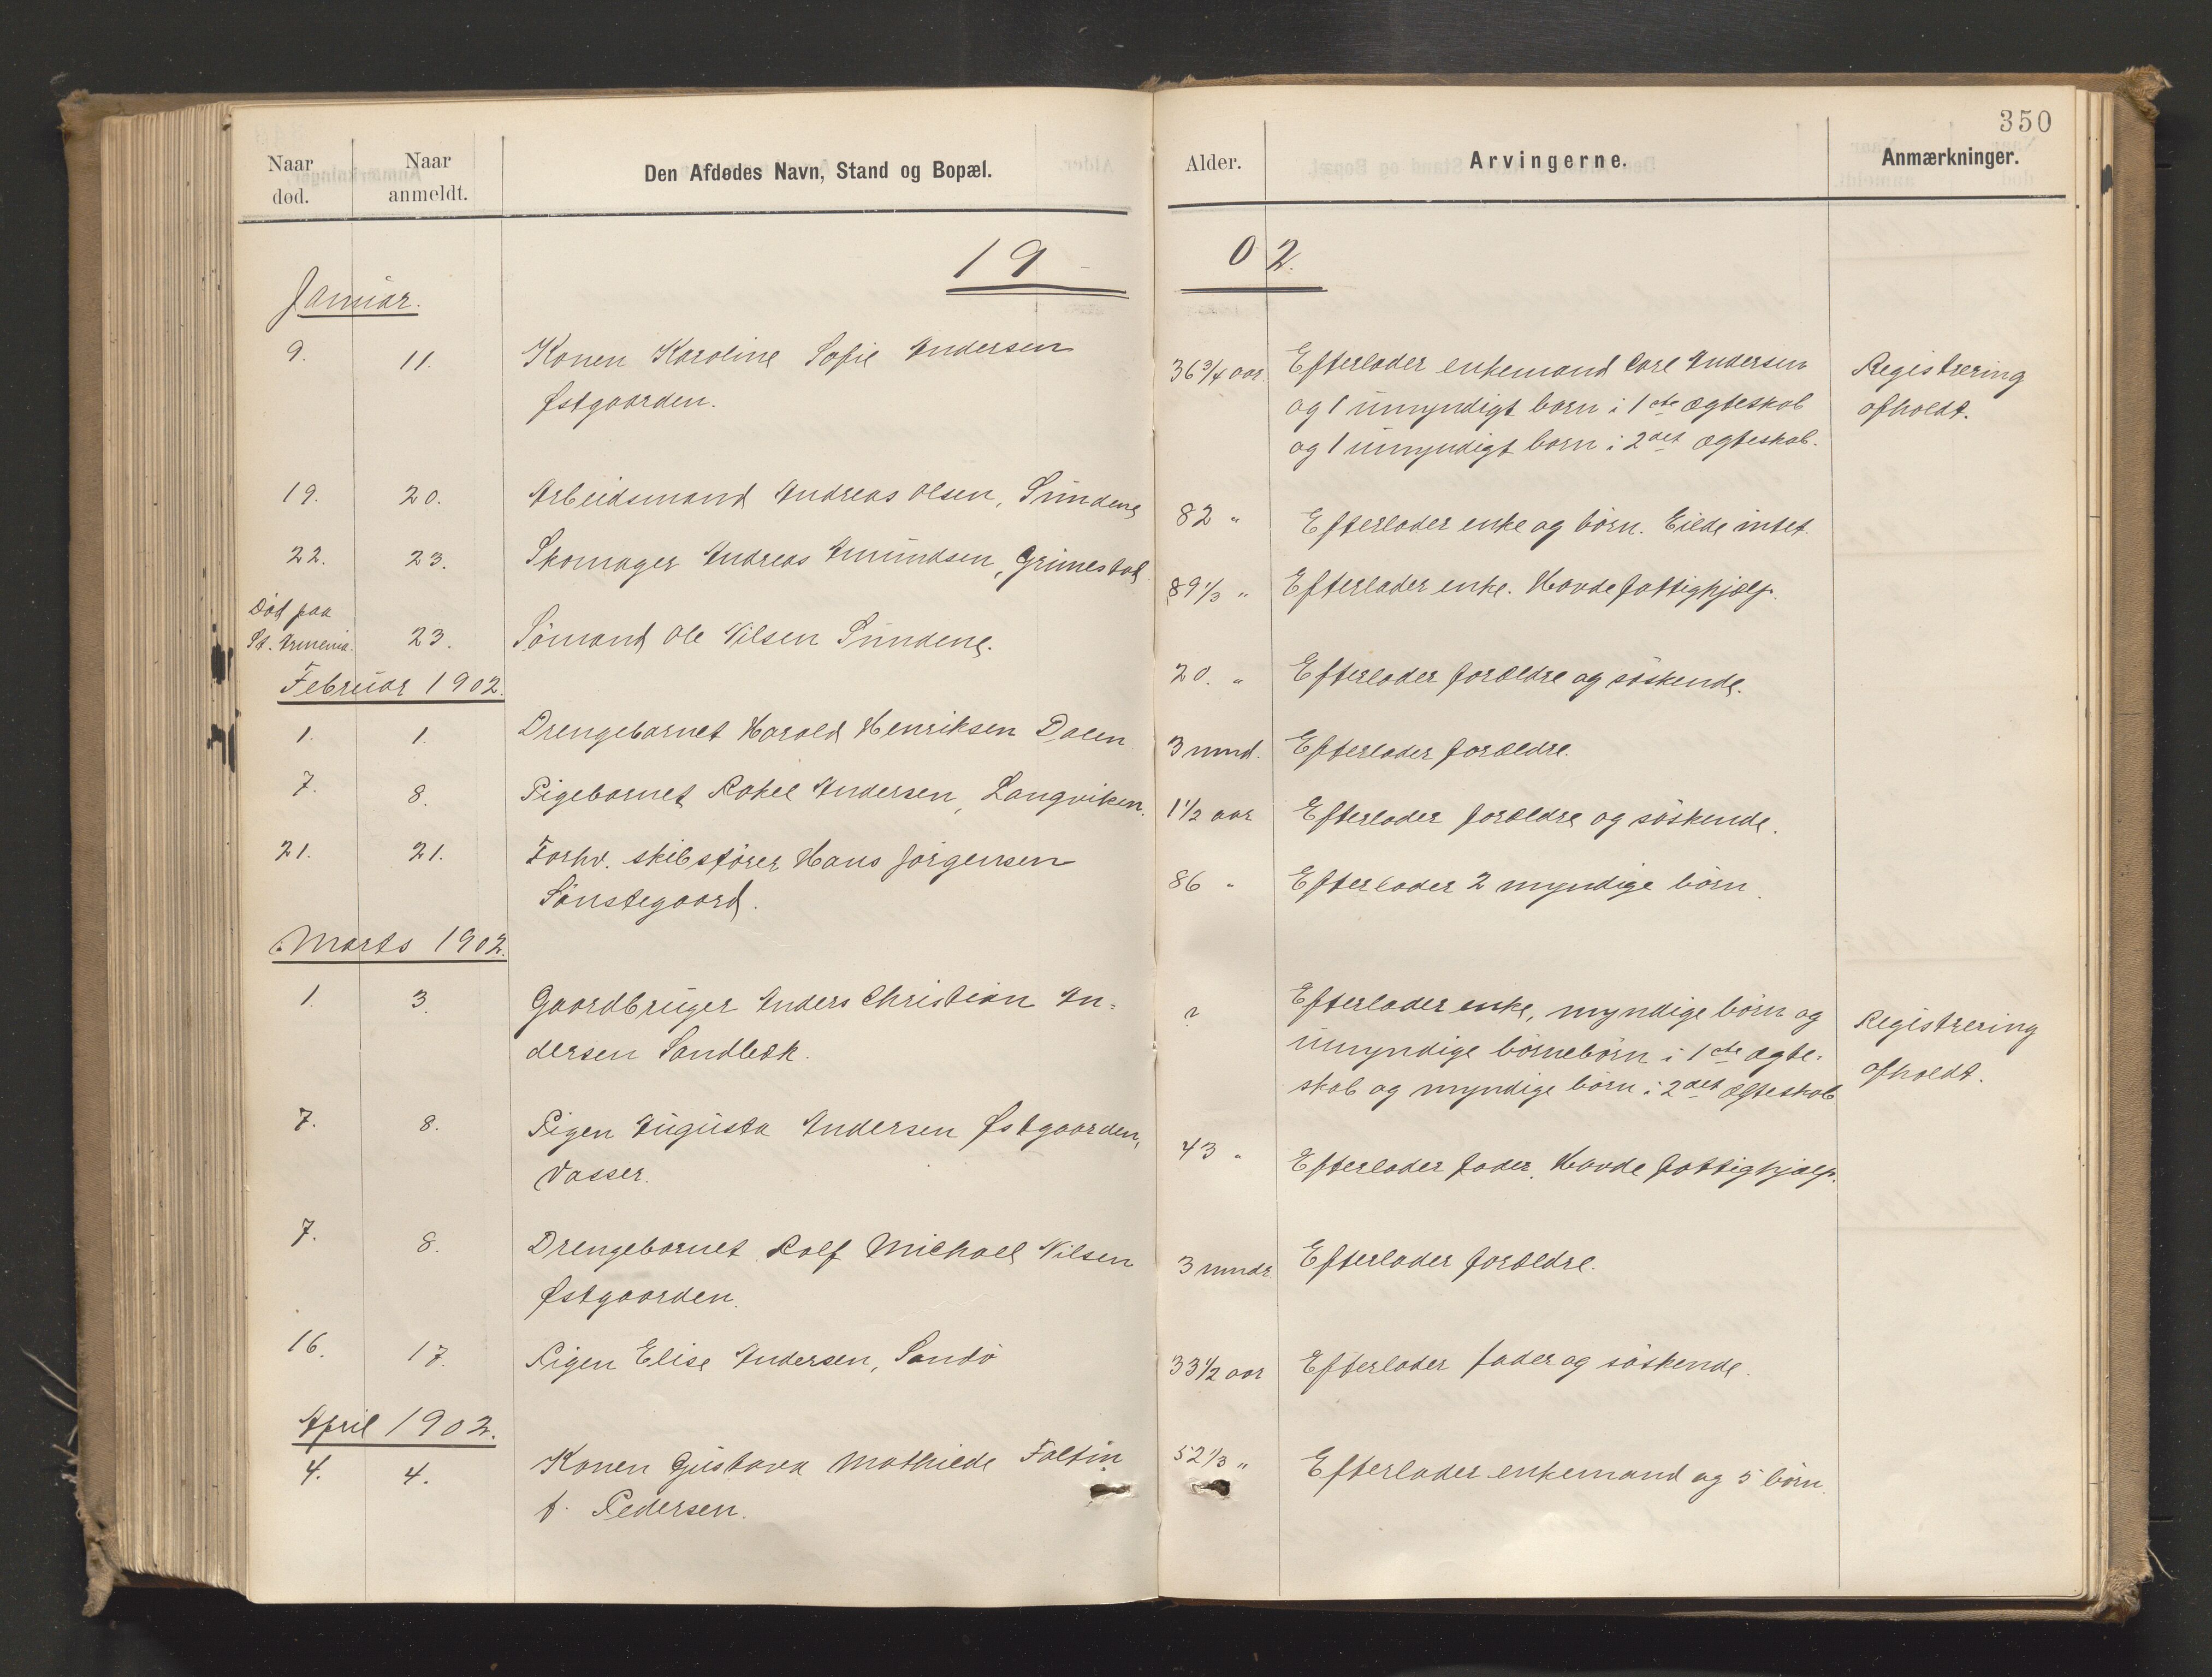 350
Naar død.
Naar anmeldt.
Den Afdødes Navn, Stand og Bopæl.
Alder.
Arvingerne.
Anmærkninger.
19 02.
Januar.
9. 11. Konen Karoline Sofie Andersen
Østgaarden.
36 3/4 aar. Efterlader enkemand Carl Andersen
og 1 umyndigt barn i 1ste ægteskab
og 1 umyndigt barn i 2det ægteskab.
Registrering
afholdt.
19. 20. Arbeidsmand Andreas Olsen, Sundene
82 " Efterlader enke og börn. Eiede intet.
22. 23. Skomager Andreas Amundsen, Grimestad
89 1/3 " Efterlader enke. Havde fattighjælp.
Död paa
St. 23. Sömand Ole Nilsen Sundene.
20. " Efterlader forældre og söskende.
Februar 1902.
1. 1. Drengebarnet Harald Henriksen Dalen
3 mnd. Efterlader forældre.
7. 8. Pigebarnet Rakel Andersen, Langviken.
1 1/2 aar Efterlader forældre og söskende.
21. 21. Forhv. skibsförer Hans Jörgensen
Sönstegaard.
86 " Efterlader 2 myndige börn.
Marts 1902.
1. 3. Gaardbruger Anders Christian An-
dersen Sandbæk.
? Efterlader enke, myndige börn og
umyndige börnebörn i 1ste ægte-
skab og myndige börn i 2det ægteskab
Registrering
afholdt.
7. 8. Pigen Augusta Andersen Østgaarden,
Vasser.
43 " Efterlader fader. Havde fattighjælp.
7. 8. Drengebarnet Rolf Michael Nilsen
Østgaarden.
3 mndr Efterlader forældre.
16. 17. Pigen Elise Andersen, Sandö
33 1/2 aar Efterlader fader og söskende.
April 1902.
4. 4. Konen Gustava Mathilde Faltin
f. Pedersen.
52 1/3 " Efterlader enkemand og 5 börn.